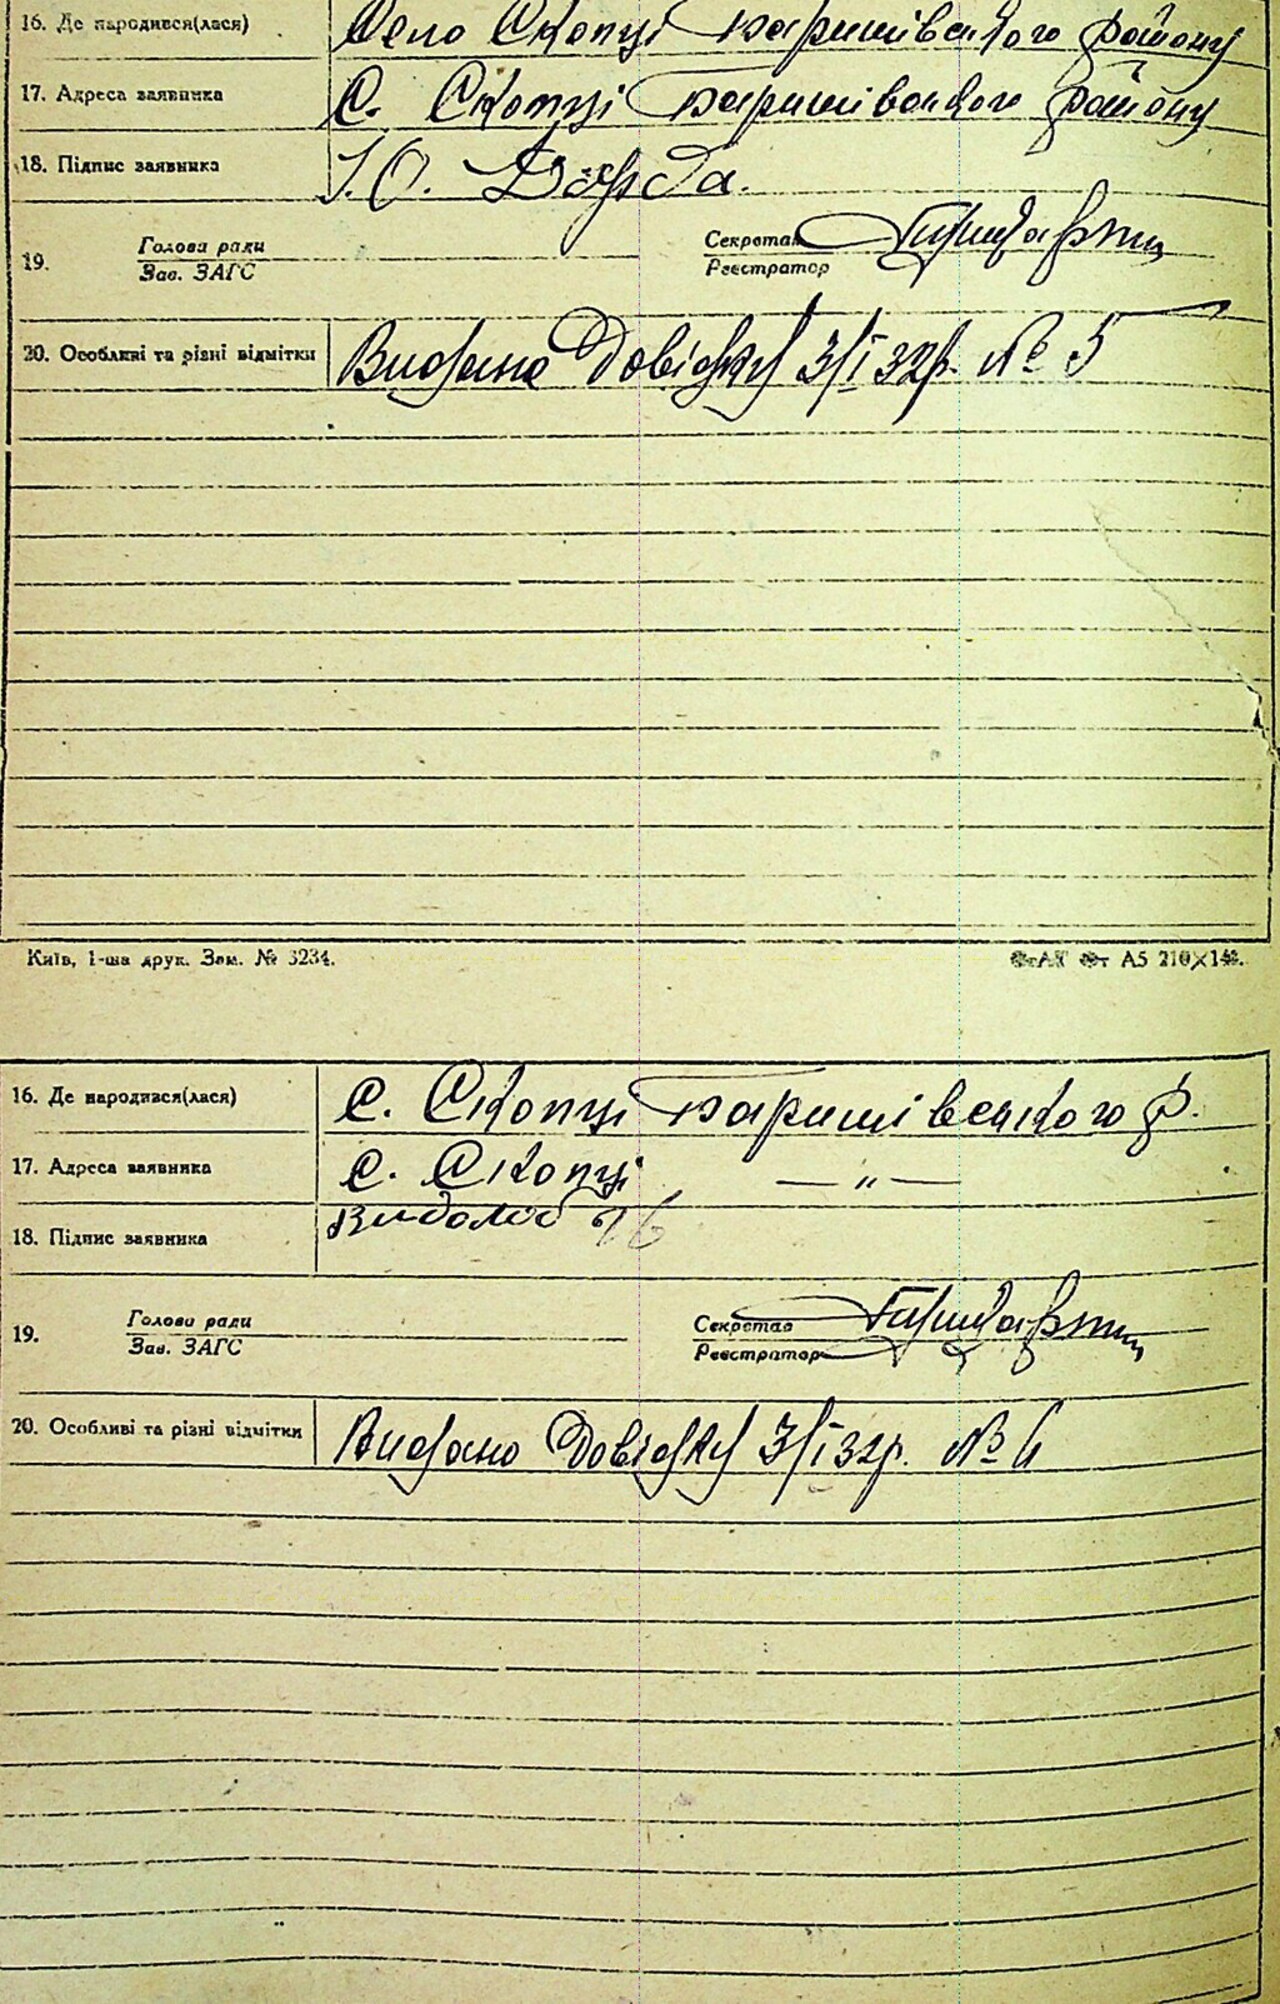 16. Де народився(лася) Село Скопці Баришівського району
17. Адреса заявника С. Скопці Баришівського району
18. Підпис заявника І. О.
19. Голова ради Секретар
Зав. ЗАГС Реєстратор
20. Особливі та різні відмітки Видана Довідку 3/I 32р. № 5
Київ, 1-ша друк. Зам. № 3234. А5 210×148.
16. Де народився(лася) С. Скопці Баришівського р.
17. Адреса заявника С. Скопці — „ —
18. Підпис заявника
19. Голова ради Секретар
Зав. ЗАГС Реєстратор
20. Особливі та різні відмітки Видано Довідку 3/I 32р. № 6